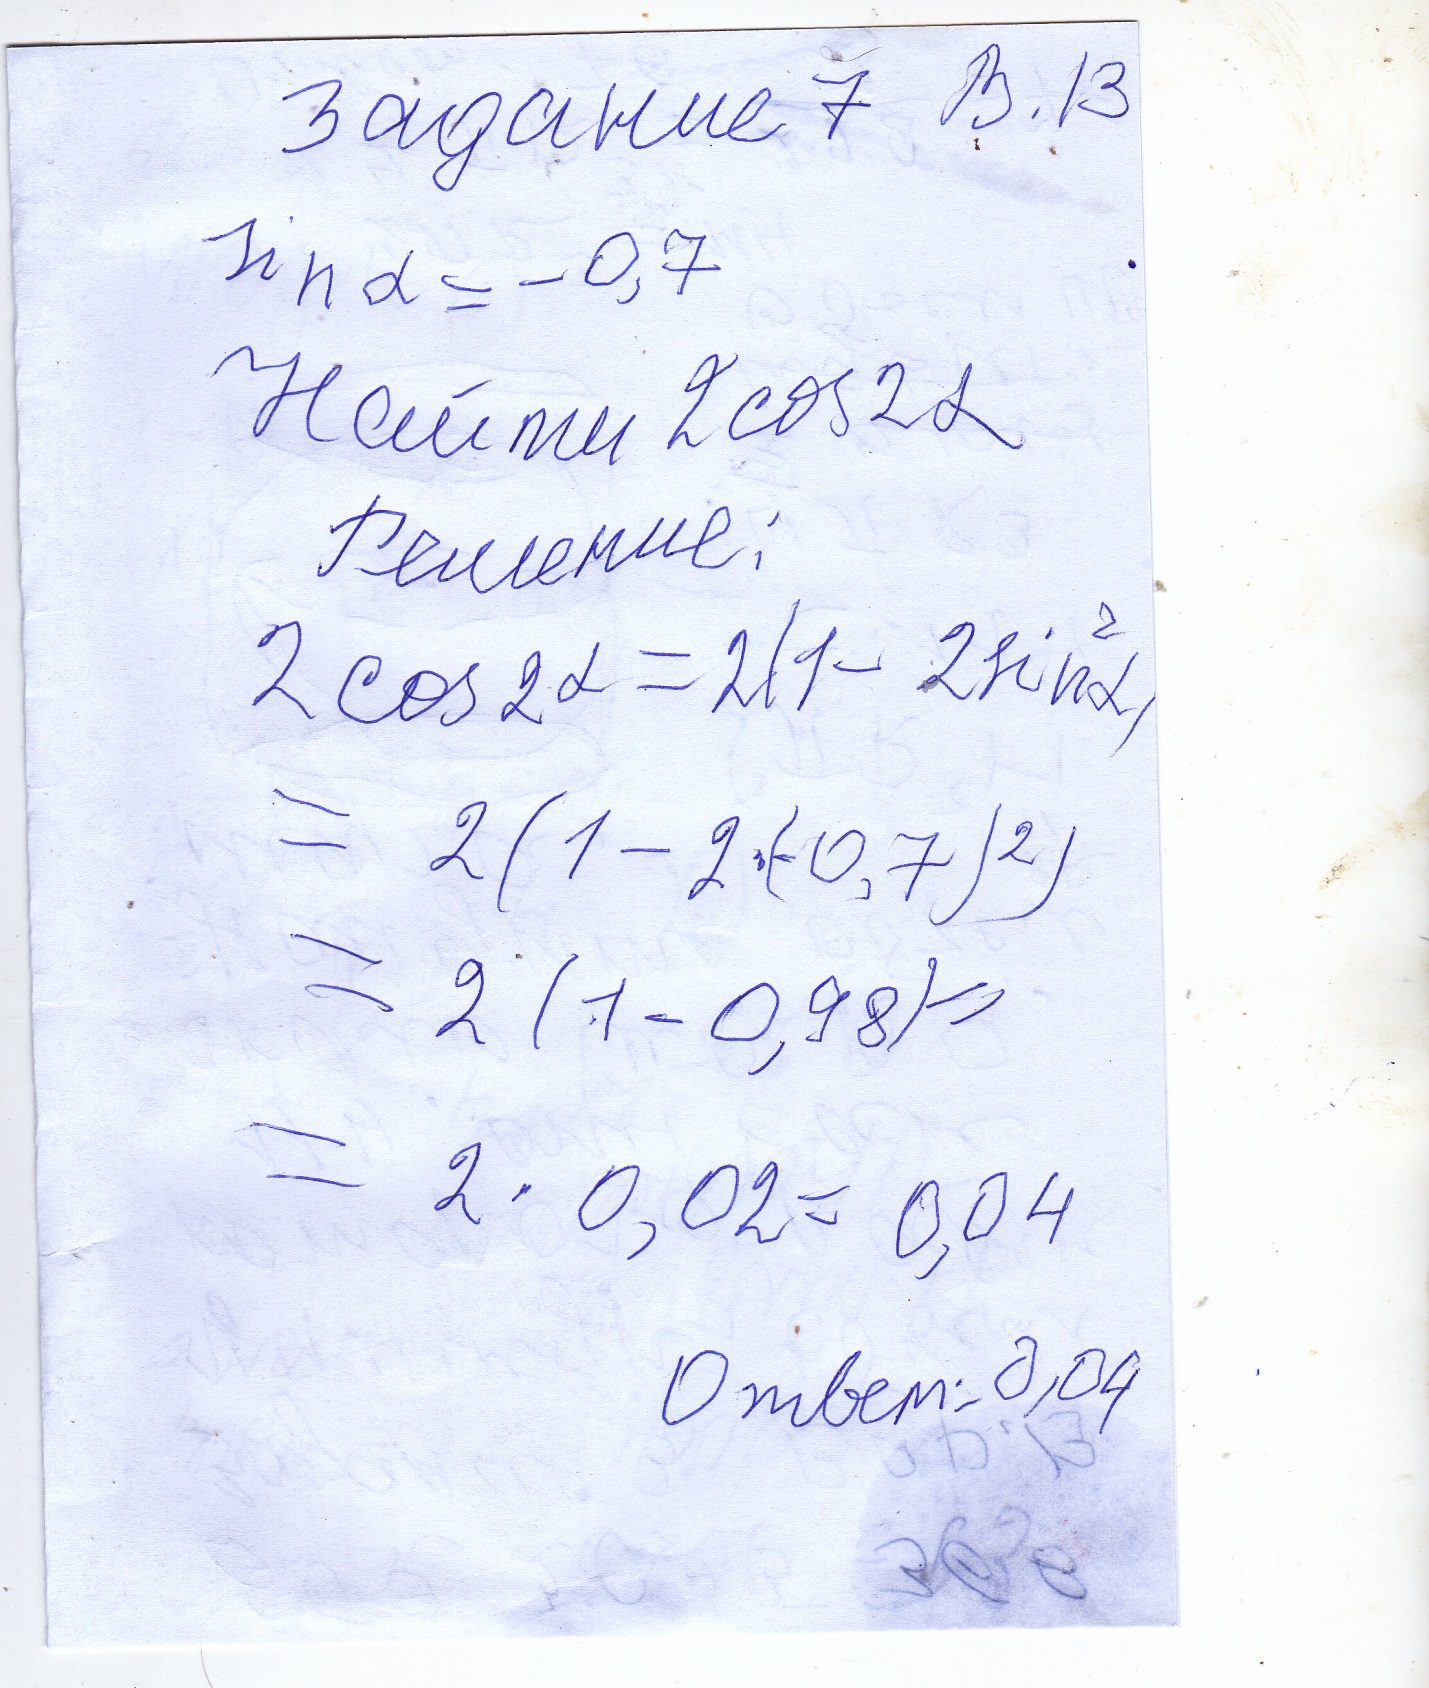 Задание 7 В.13
sin α = -0,7
Найти 2cos2α
Решение:
2cos2α = 2(1 - 2sin²α)
= 2(1 - 2·(-0,7)²)
= 2(1 - 0,98) =
= 2 · 0,02 = 0,04
Ответ: 0,04